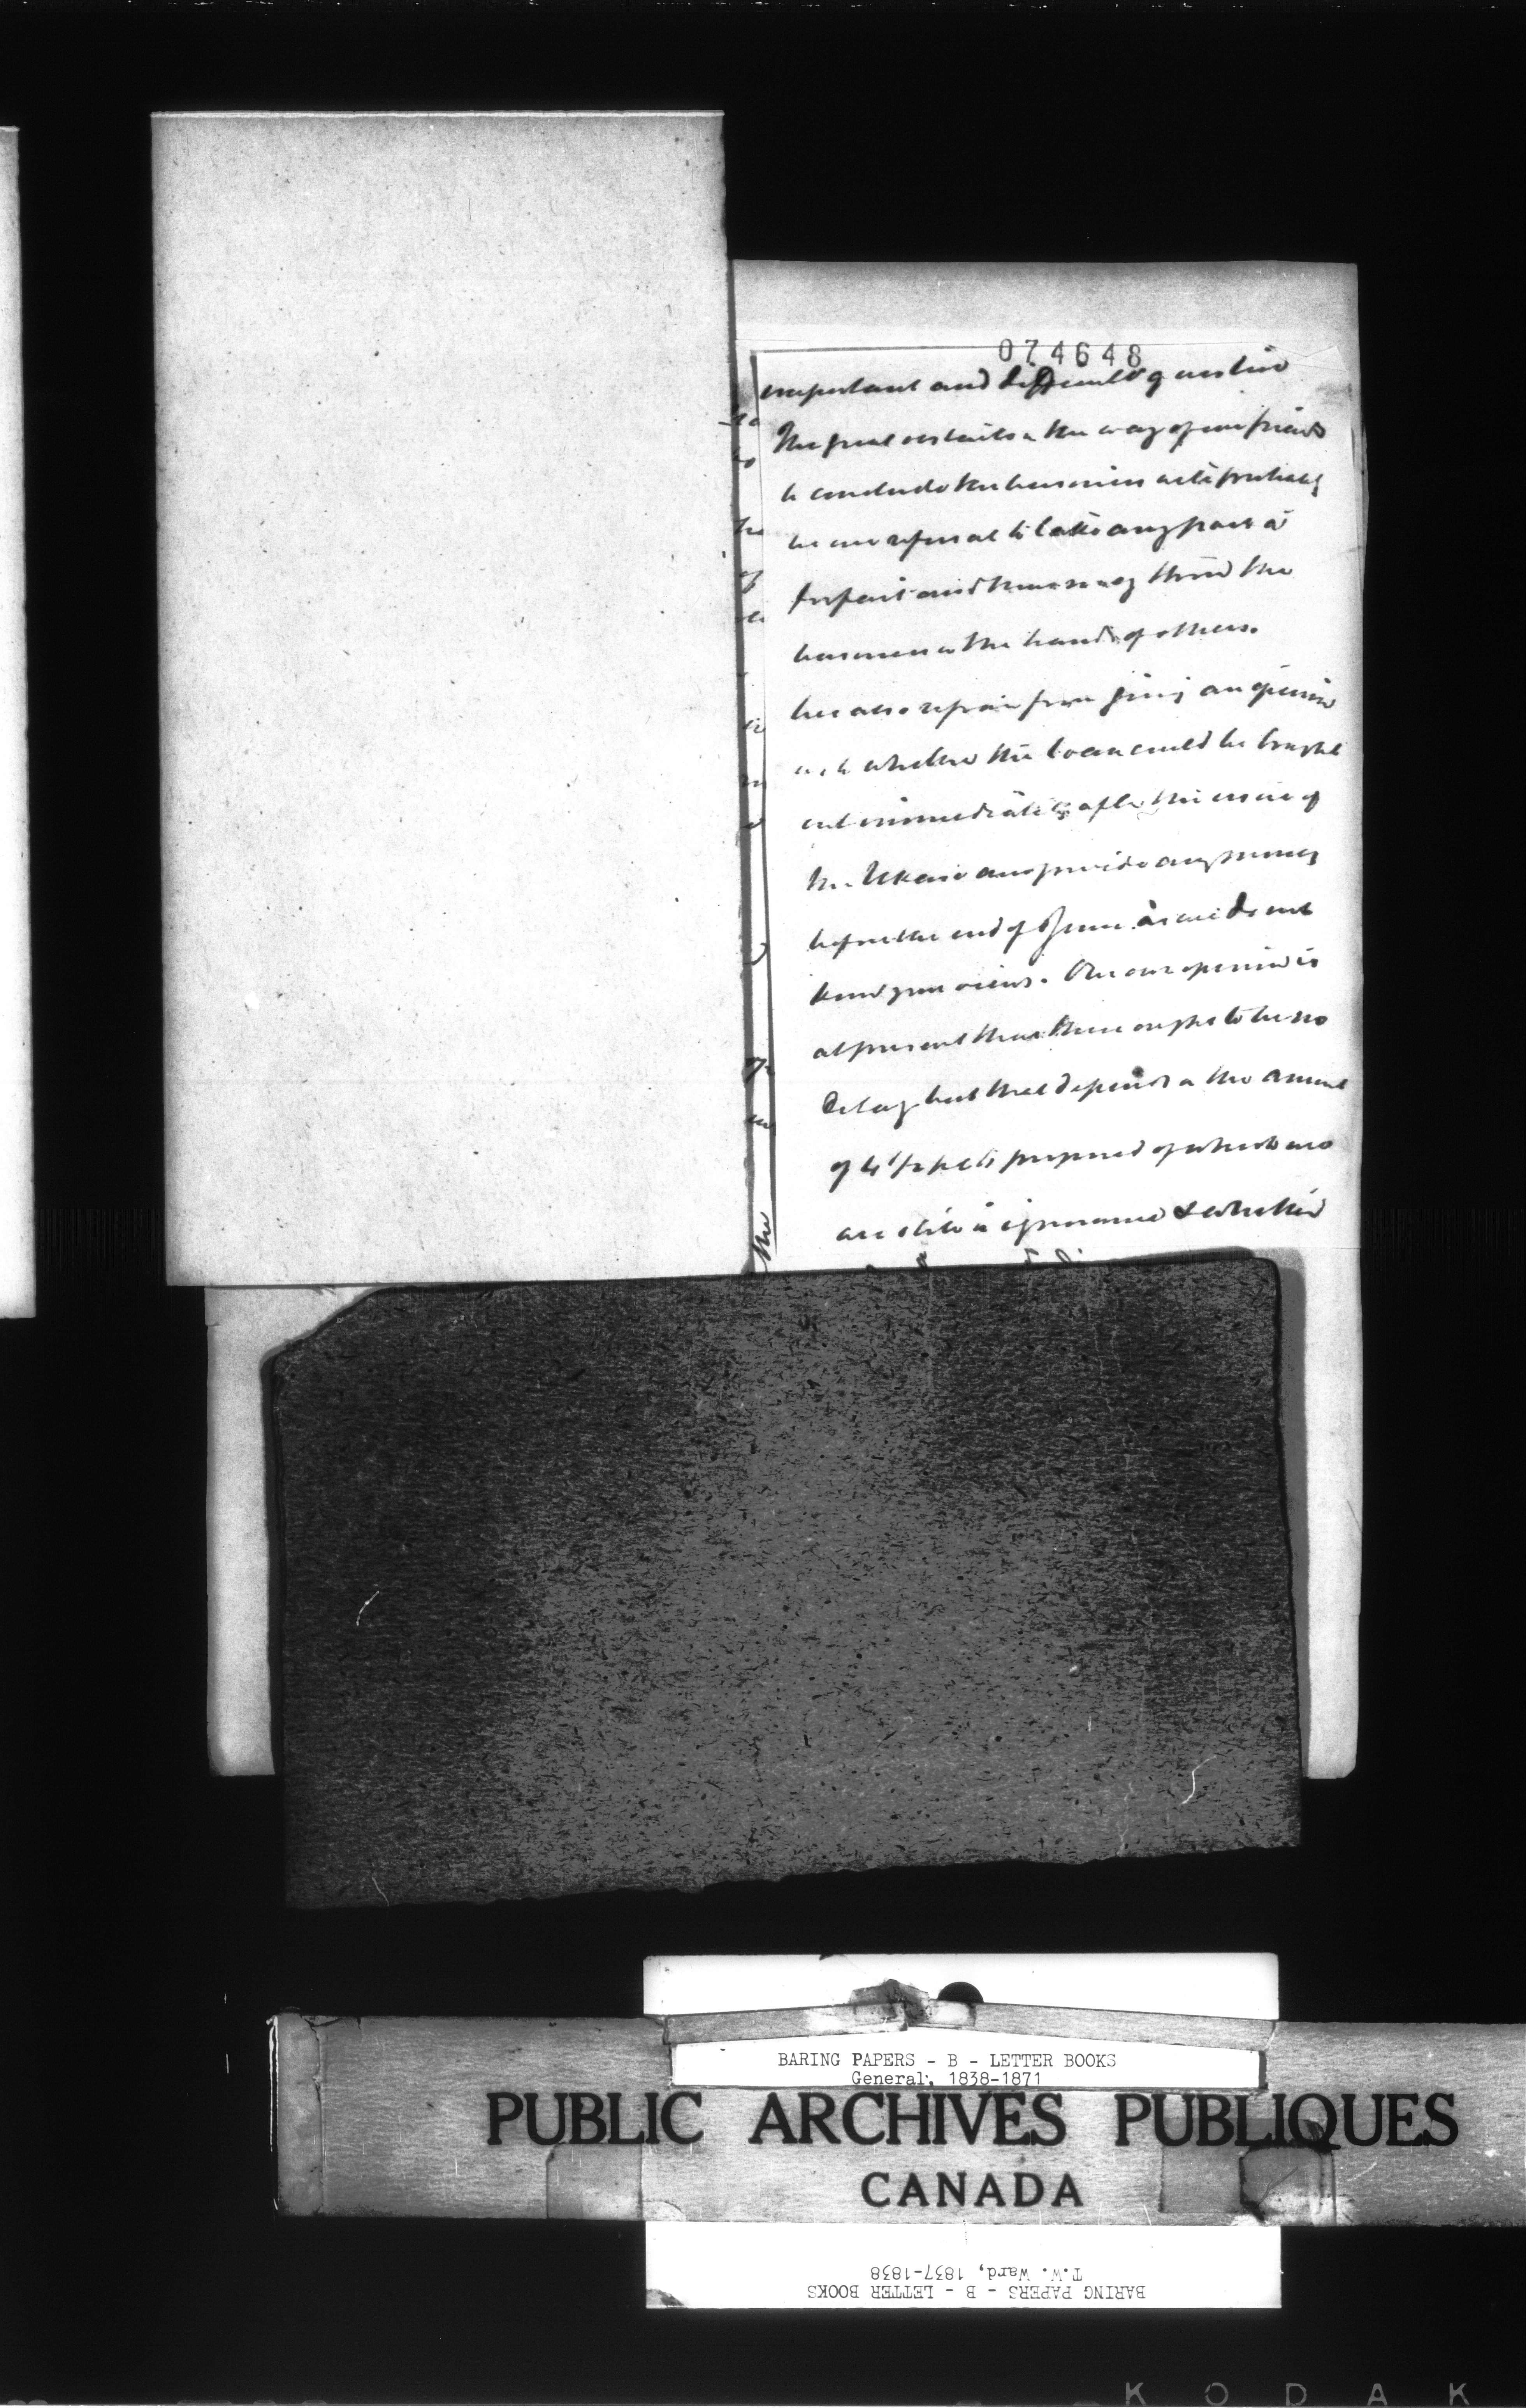 074648
important and difficult question
The great obstacle in the way of our friends
to conclude the business will probably
be our refusal to take any part à
forfait and throw the
business in the hands of others.
We also refrain from giving an opinion
as to whether the loan could be brought
out immediately after the issue of
the Ukase and provide any money
before the end of June as we do not
know your views. Our own opinion is
at present that there ought to be no
delay but that depends on the amount
of 4 1/2 pCts proposed of which we
are still in ignorance & whether
the
BARING PAPERS - B - LETTER BOOKS
General, 1838-1871
PUBLIC ARCHIVES PUBLIQUES
CANADA
T.W. Ward, 1837-1838
BARING PAPERS - B - LETTER BOOKS
KODAK